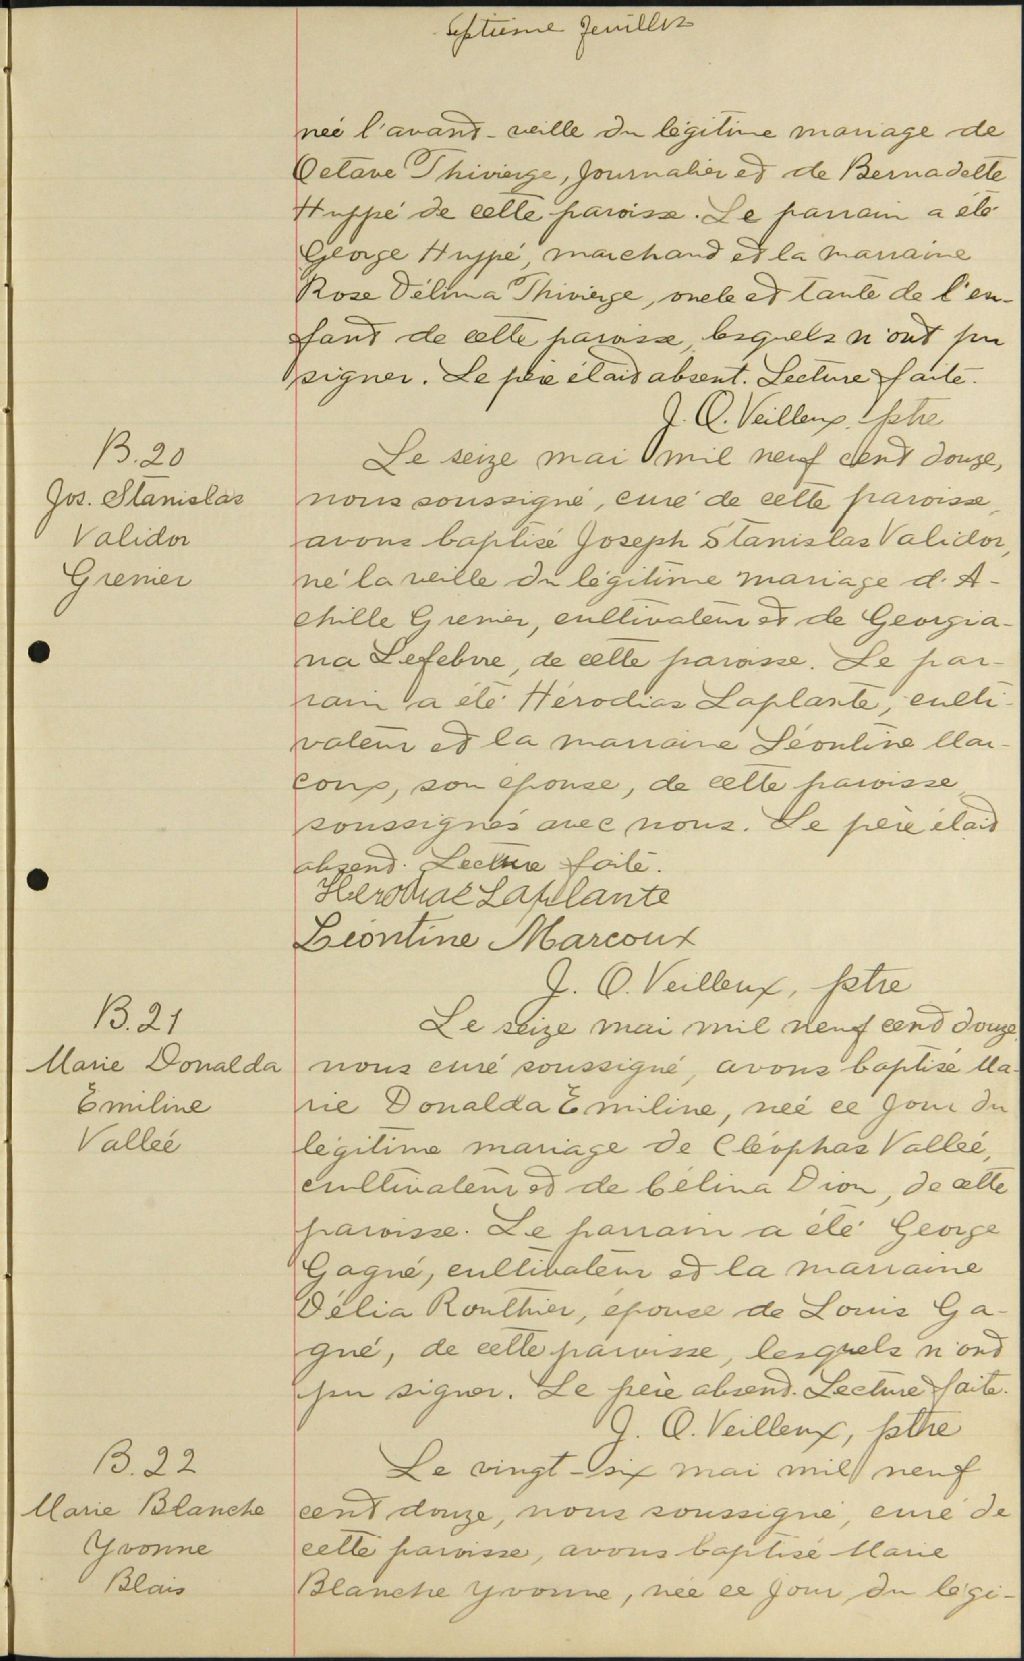 Septième feuillet
née l'avant-veille du légitime mariage de
Octave Thivierge, journalier et de Bernadette
Huppé de cette paroisse. Le parrain a été
George Huppé, marchand et la marraine
Rose Délima Thivierge, oncle et tante de l'en-
fant de cette paroisse, lesquels n'ont pu
signer. Le père était absent. Lecture faite.
J. O. Veilleux, ptre
B.20
Jos. Stanislas
Validor
Grenier
Le seize mai mil neuf cent douze,
nous soussigné, curé de cette paroisse,
avons baptisé Joseph Stanislas Validor,
né la veille du légitime mariage d'A-
chille Grenier, cultivateur et de Georgia-
na Lefebvre, de cette paroisse. Le par-
rain a été Hérodias Laplante, culti-
vateur et la marraine Léontine Mar-
coux, son épouse, de cette paroisse,
soussignés avec nous. Le père était
absent. Lecture faite.
Herodias Laplante
Léontine Marcoux
J. O. Veilleux, ptre
B.21
Marie Donalda
Émiline
Vallée
Le seize mai mil neuf cent douze,
nous curé soussigné, avons baptisé Ma-
rie Donalda Émiline, née ce jour du
légitime mariage de Cléophas Vallée,
cultivateur et de Célina Dion, de cette
paroisse. Le parrain a été George
Gagné, cultivateur et la marraine
Délia Routhier, épouse de Louis Ga-
gné, de cette paroisse, lesquels n'ont
pu signer. Le père absent. Lecture faite.
J. O. Veilleux, ptre
B.22
Marie Blanche
Yvonne
Blais
Le vingt-six mai mil neuf
cent douze, nous soussigné, curé de
cette paroisse, avons baptisé Marie
Blanche Yvonne, née ce jour du légi-